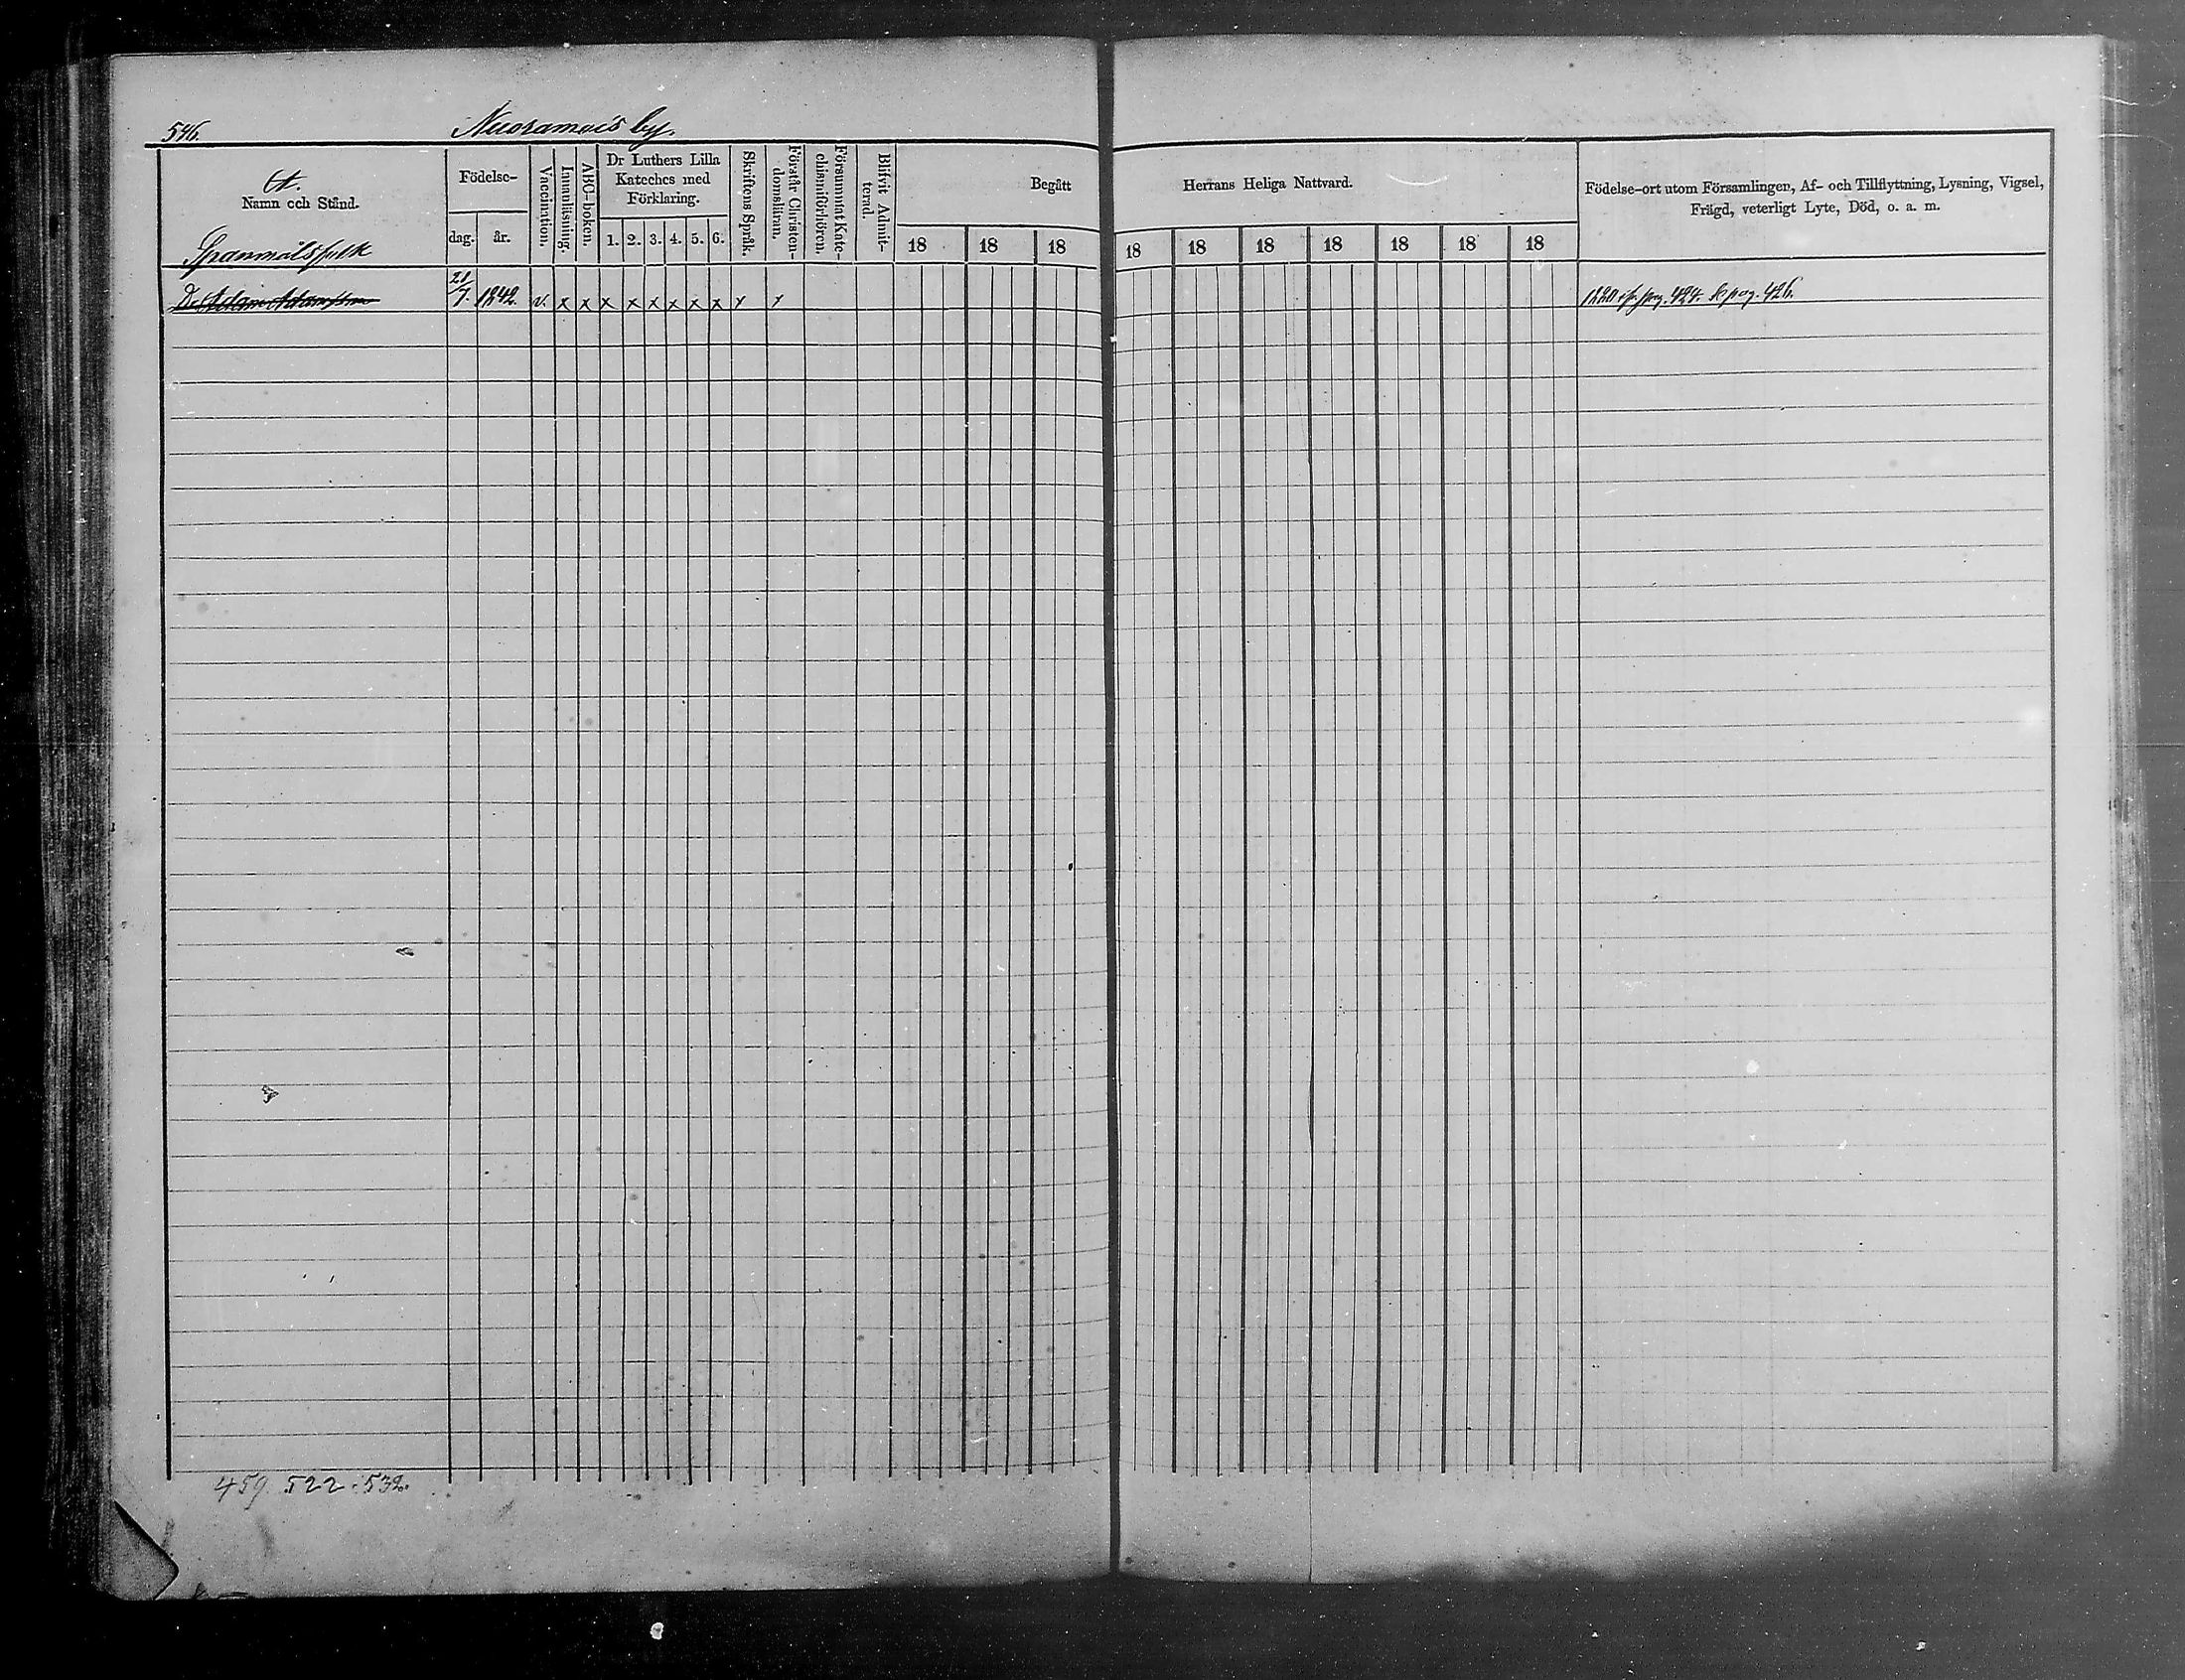 546.
Nuoramois by.
A.
Namn och Stånd.
Spanmålsfolk
Födelse-
dag.
år.
Vaccination.
Innanläsning.
ABC-boken.
Dr Luthers Lilla
Kateches med
Förklaring.
1. 2. 3. 4. 5. 6.
Skriftens Språk.
Förstår Christen-
domsläran.
Försummat Kate-
chismiförhören.
Blifvit Admit-
terad.
Begått
18 18 18
Herrans Heliga Nattvard.
18 18 18 18 18 18 18
Födelse-ort utom Församlingen, Af- och Tillflyttning, Lysning, Vigsel,
Frägd, veterligt Lyte, Död, o. a. m.
D. Adam Adamsson 21/7. 1842. v. x x x x x x x x y y fr. pag. 424. pag. 426.
459 522. 532.